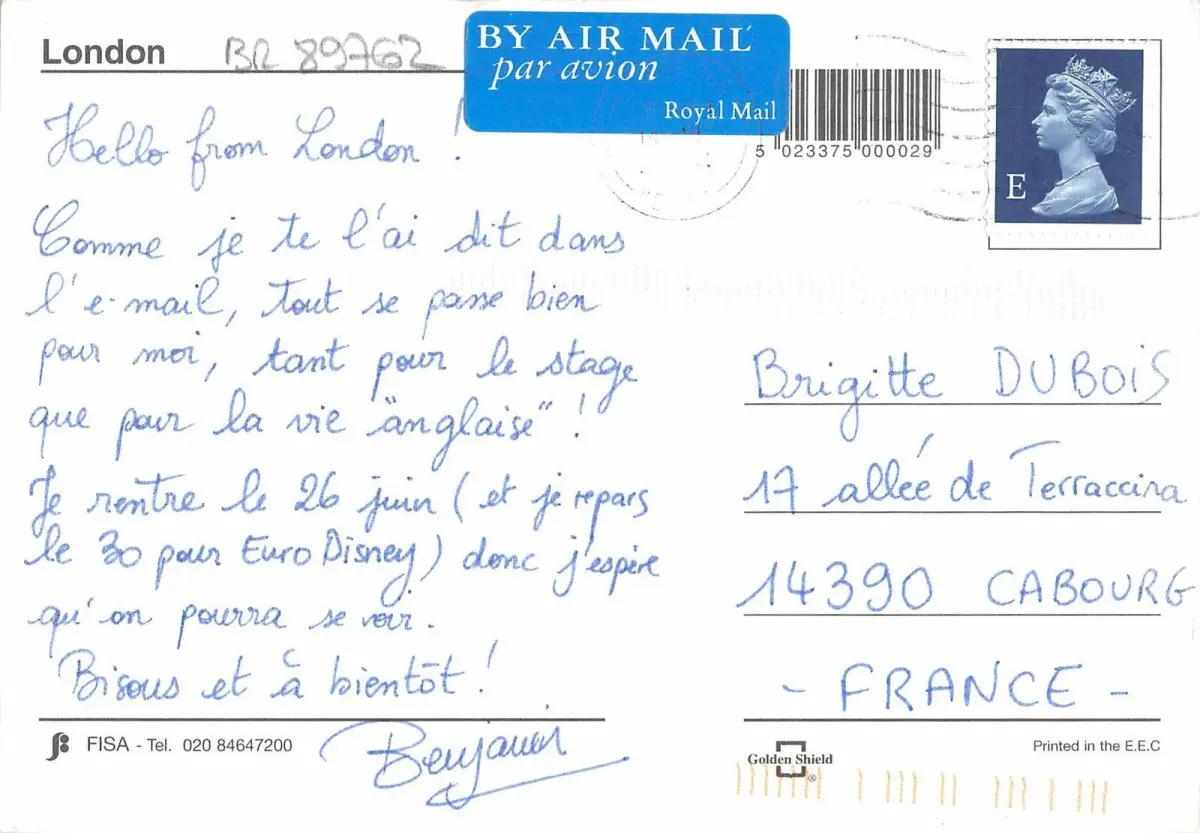 London BR 89762
BY AIR MAIL
par avion
Royal Mail
5 023375 000029
E
Hello from London !
Comme je te l'ai dit dans
l'e-mail, tout se passe bien
pour moi, tant pour le stage
que pour la vie "anglaise" !
Je rentre le 26 juin (et je repars
le 30 pour Euro Disney) donc j'espère
qu'on pourra se voir.
Bisous et à bientôt !
Benjamin
Brigitte DUBOIS
17 allée de Terraccina
14390 CABOURG
- FRANCE -
FISA - Tel. 020 84647200
Golden Shield ®
Printed in the E.E.C